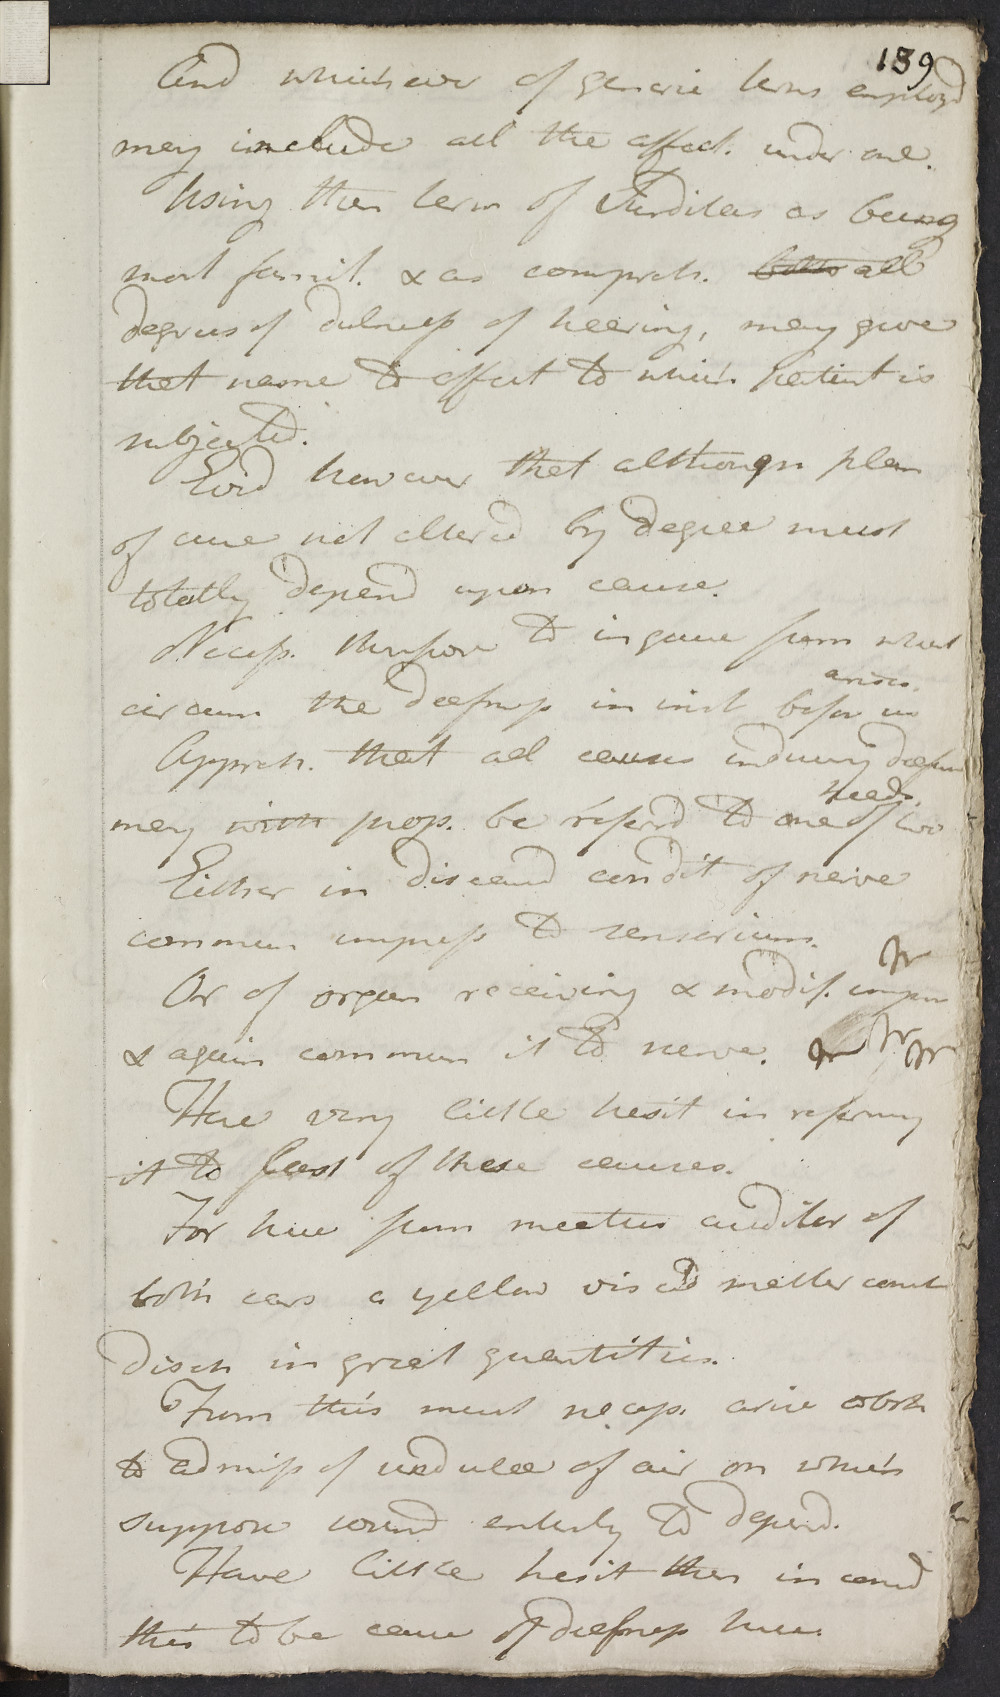 139
And whichever of generic terms employd
may include all the affect. under one.
Using then term of Surditas as being
most famil. & as compreh. all
degrees of dulness of hearing, may give
that name to affect to which Patient is
subjected.
Evid however that although plan
of cure not altered by degree must
totally depend upon cause.
Necess. therefore to inquire from what
arises.
circum the deafness in inst before us
Appreh. that all causes inducing deafn
Heads.
may with prop. be referd to one of two
Either in diseasd condit of nerve
commun impress to sensorium.
Or of organ receiving & modif. impn
& again commun it to nerve.
Have very little hesit in referring
it to last of these causes.
For here from meatus auditor of
both ears a yellow viscid matter const
disch in great quantities.
From this must necess. arise obstr
to admiss of undulae of air on which
suppose sound entirely to depend.
Have little hesit then in consd
this to be cause of deafness here.